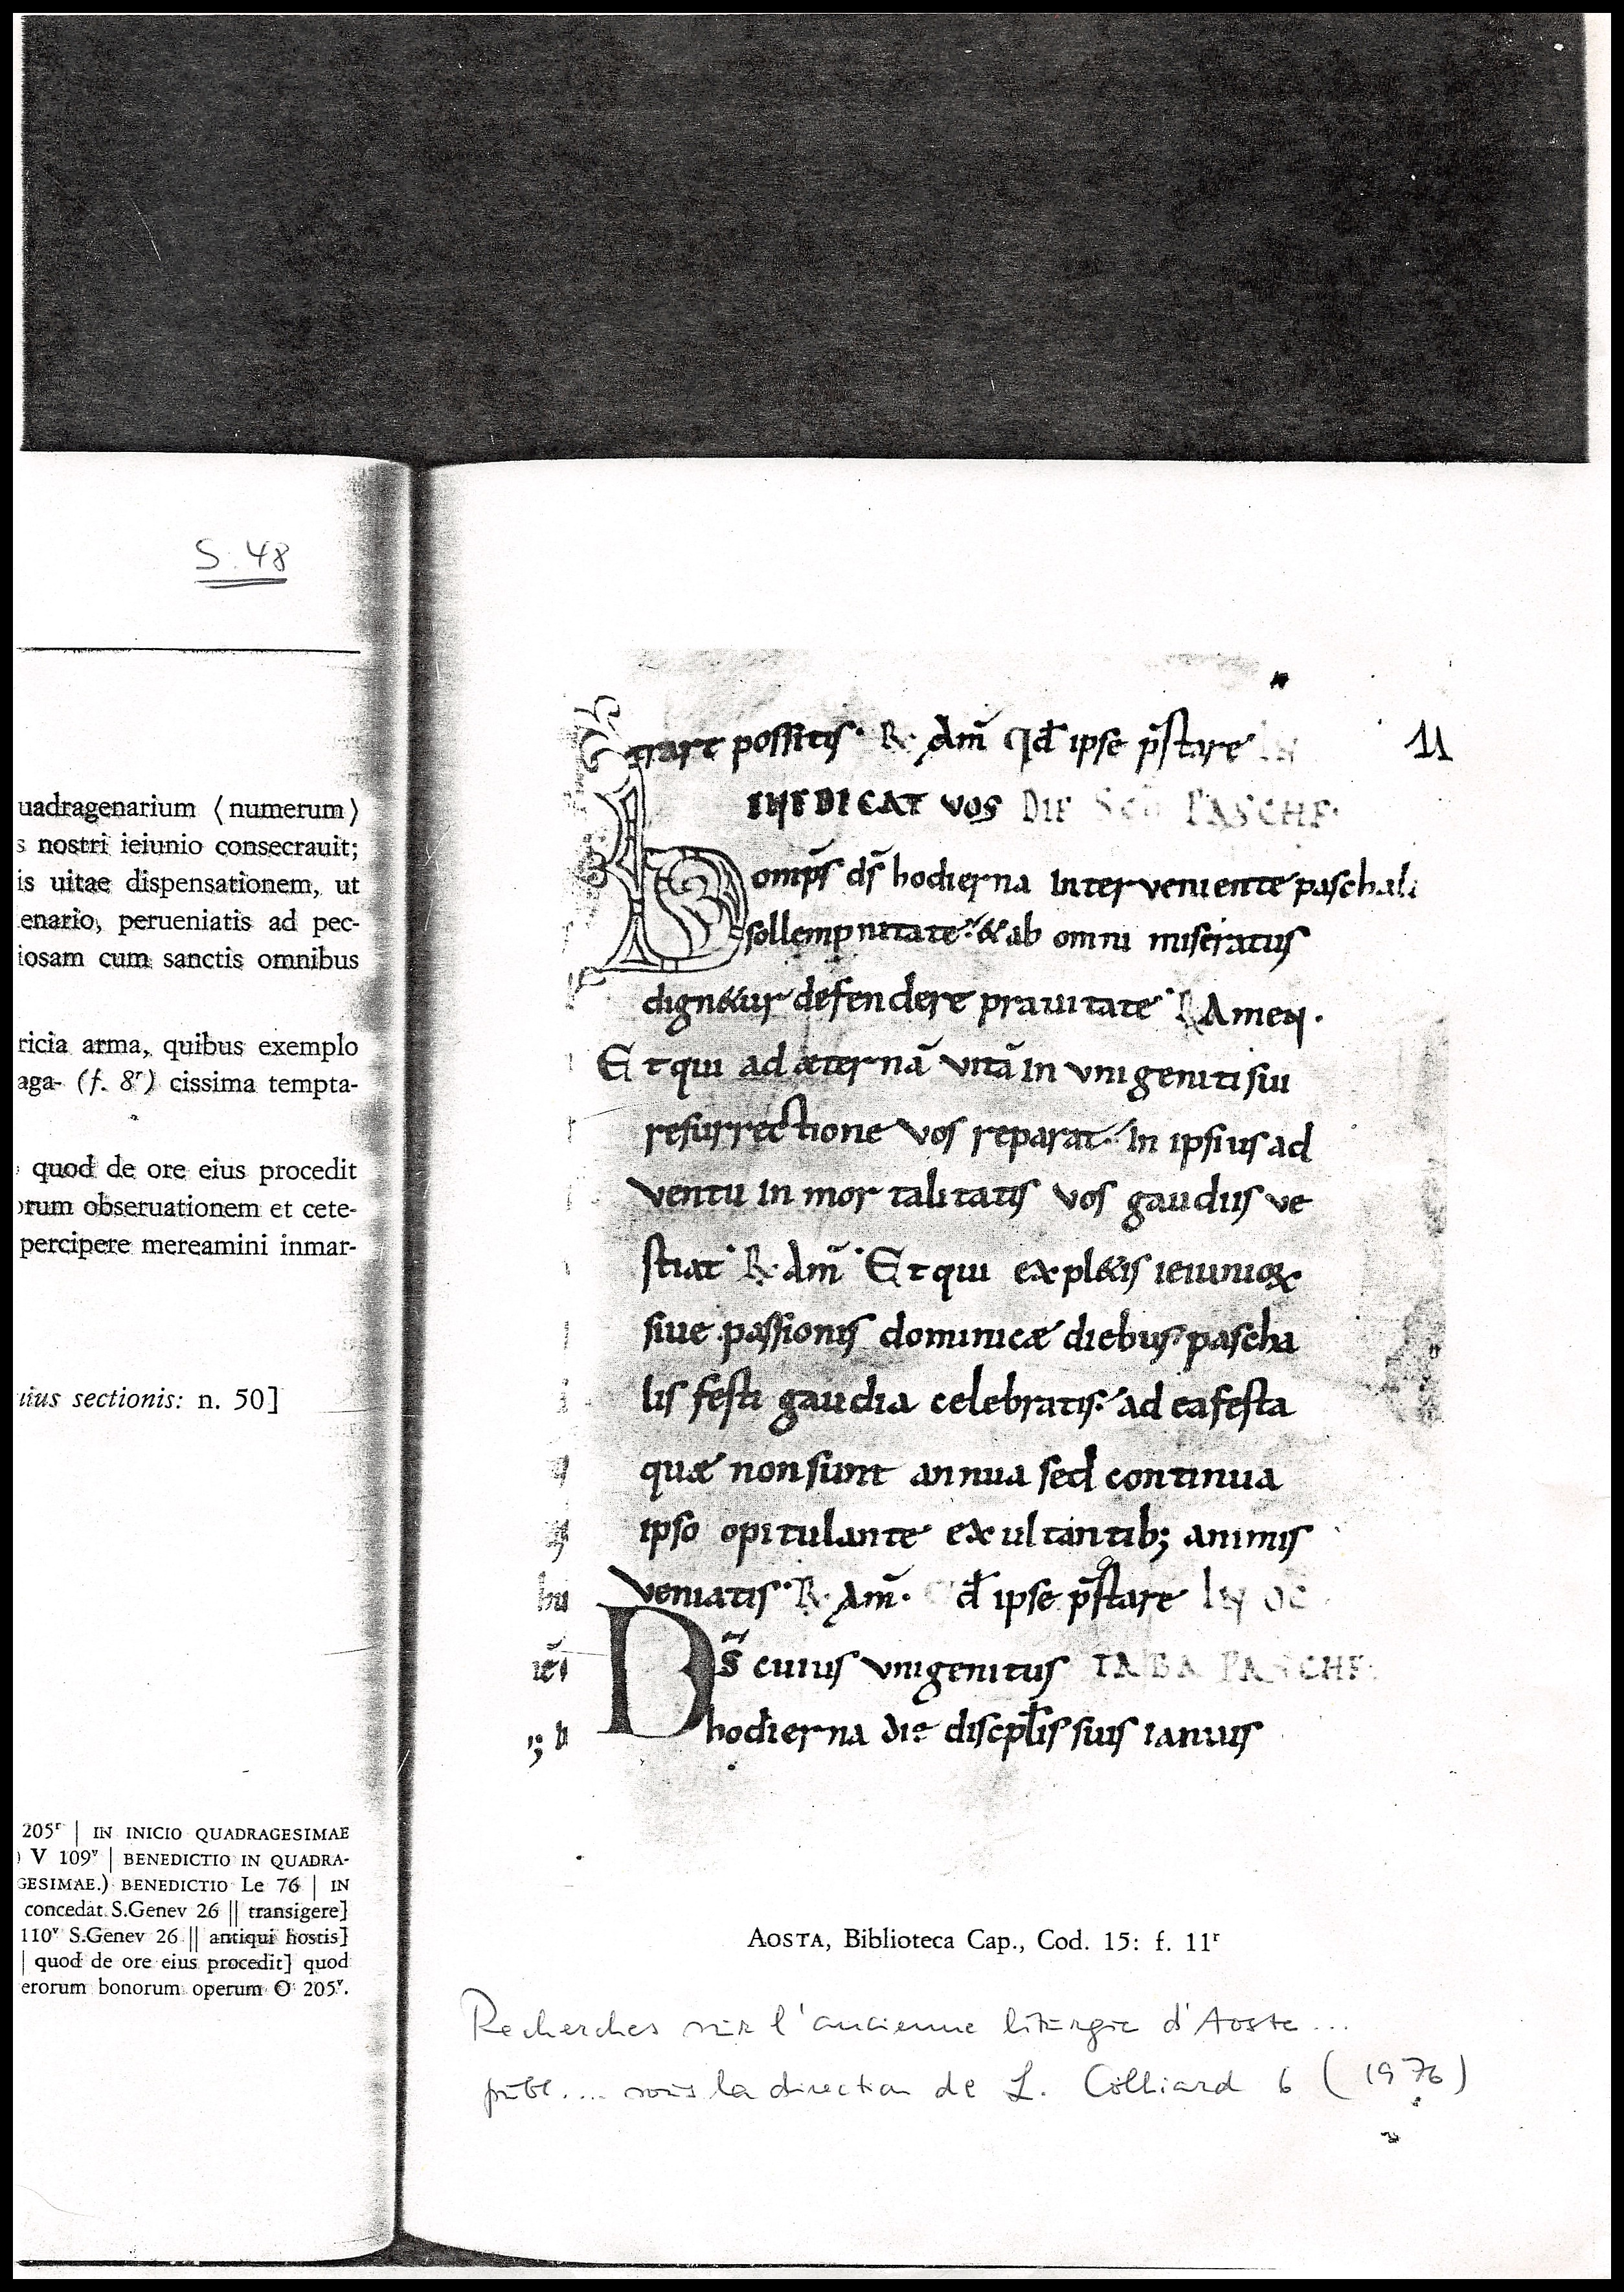 S. 48
uadragenarium ⟨numerum⟩
s nostri ieiunio consecrauit;
is uitae dispensationem, ut
enario, perueniatis ad pec-
iosam cum sanctis omnibus
ricia arma, quibus exemplo
aga- (f. 8r) cissima tempta-
quod de ore eius procedit
orum obseruationem et cete-
percipere mereamini inmar-
uius sectionis: n. 50]
205r | IN INICIO QUADRAGESIMAE
) V 109v | BENEDICTIO IN QUADRA-
GESIMAE.) BENEDICTIO Le 76 | IN
concedat S.Genev 26 || transigere]
110v S.Genev 26 || antiqui hostis]
| quod de ore eius procedit] quod
erorum bonorum operum O 205v.
trare possitis. R. Am̄ Qd̄ ipse p̄stare IN
11
BENEDICAT VOS DIE SCO PASCHE.
omp̄s ds̄ hodierna interveniente paschali
sollempnitate. & ab omni miseratus
dign&ur defendere prauitate. R Amen.
Et qui ad æternā vitā in vnigeniti sui
resurrectione vos reparat. in ipsius ad
ventu inmortalitatis vos gaudiis ve
stiat. R. Am̄. Et qui expl&is ieiunioꝝ
siue passionis dominicæ diebus. pascha
lis festi gaudia celebratis. ad ea festa
quæ non sunt annua sed continua
ipso opitulante exultantib; animis
veniatis. R. Am̄. Qd̄ ipse p̄stare IN OC
Ds̄ cuius vnigenitus TABA PASCHE.
hodierna die discpl̄is suis ianuis
AOSTA, Biblioteca Cap., Cod. 15: f. 11r
Recherches sur l'ancienne liturgie d'Aoste...
publ.... sous la direction de L. Colliard 6 (1976)